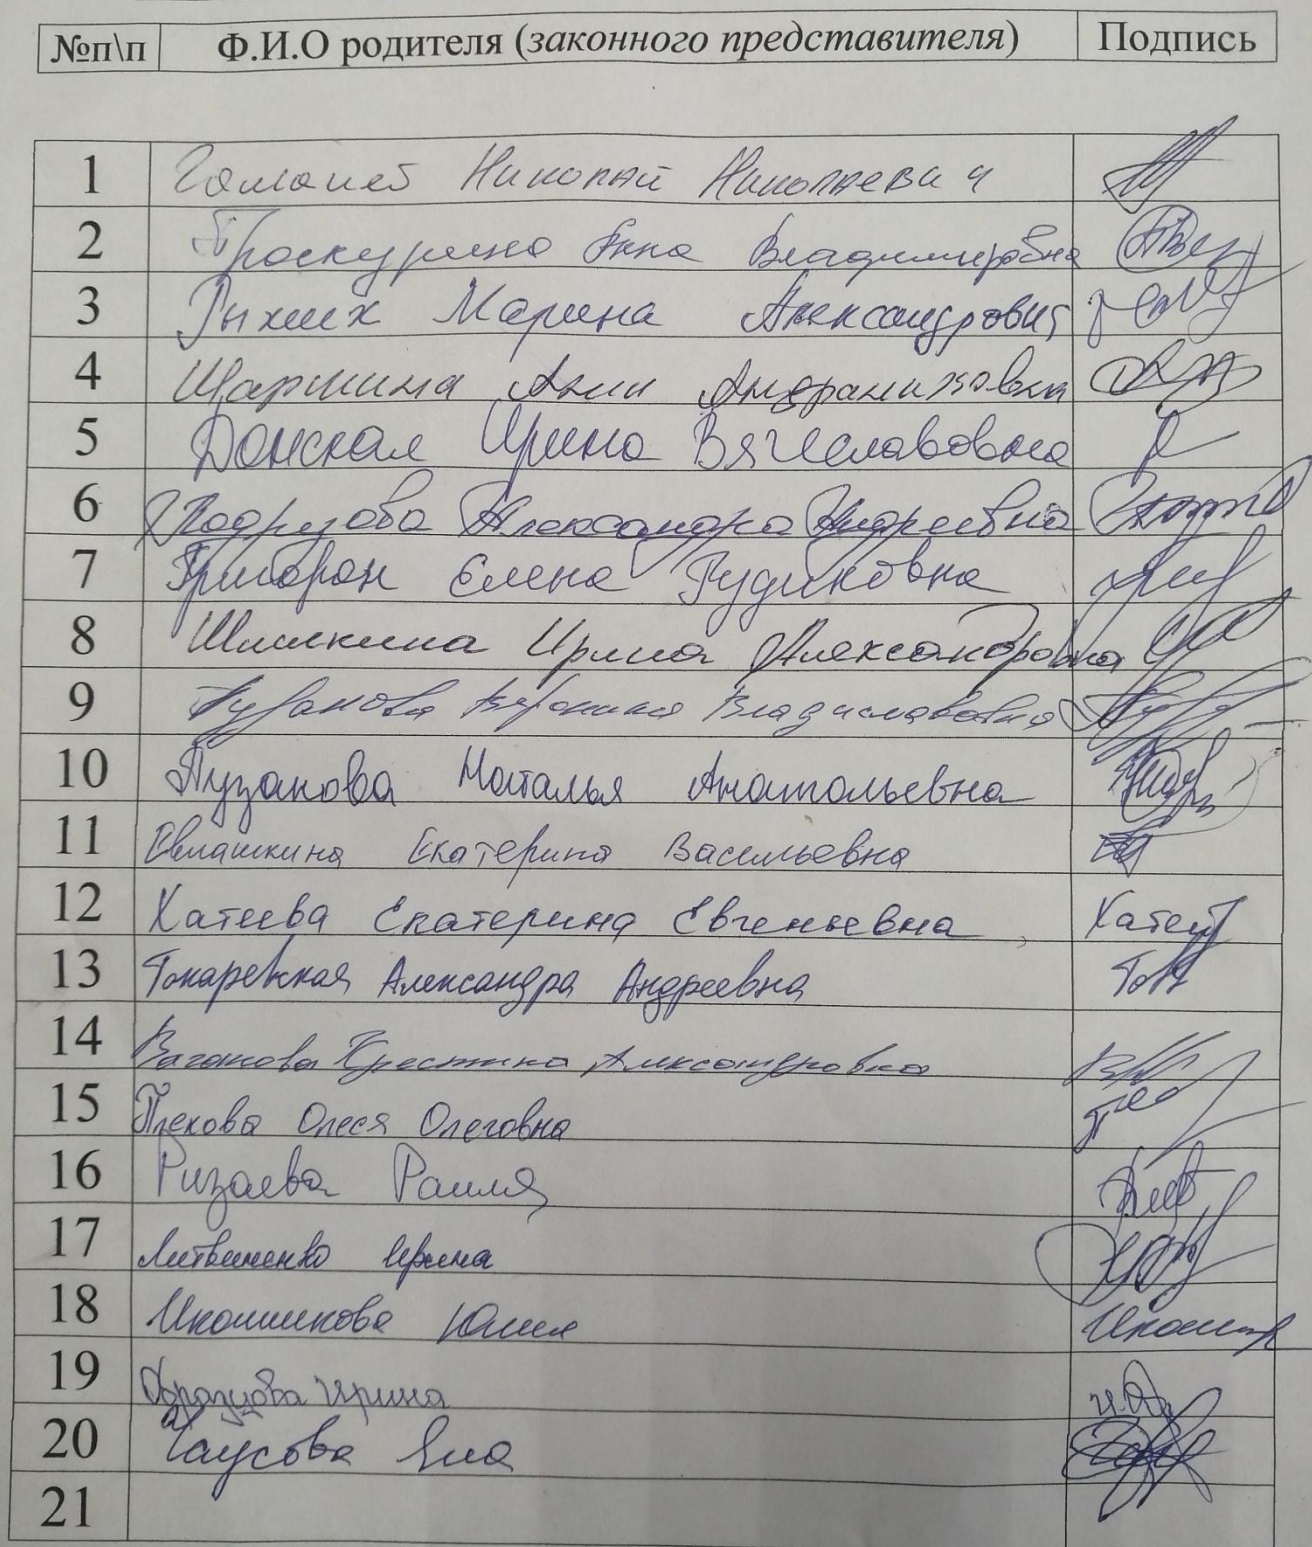 №п\п Ф.И.О родителя (законного представителя) Подпись
1 Николай Николаевич
2 Проскурина Анна Владимировна
3 Рыжих Марина Александровн
4 Шаршина Ани Андраниковна
5 Донская Ирина Вячеславовна
6 Александра Андреевна
7 Григорян Елена Рудиковна
8 Шишкина Ирина Александровна
9 Вероника Владиславовна
10 Пузанова Наталья Анатольевна
11 Евлашкина Екатерина Васильевна
12 Хатеева Екатерина Евгеньевна
13 Токаревская Александра Андреевна
14 Ваганова Кристина Александровна
15 Плехова Олеся Олеговна
16 Ризаева Раиля
17 Литвиненко Ирина
18 Иконникова Юлия
19 Образцова Ирина
20 Чаусова Яна
21